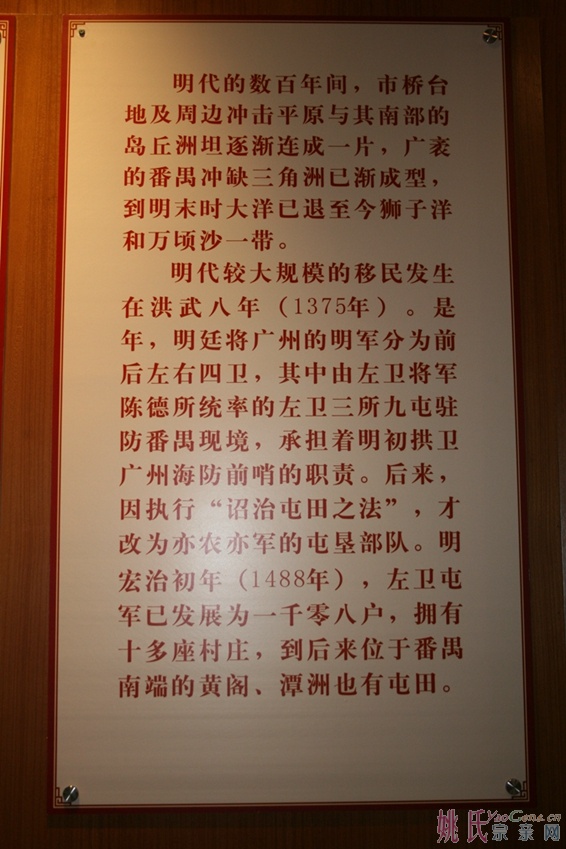 明代的数百年间，市桥台
地及周边冲击平原与其南部的
岛丘洲坦逐渐连成一片，广袤
的番禺冲缺三角洲已渐成型，
到明末时大洋已退至今狮子洋
和万顷沙一带。
明代较大规模的移民发生
在洪武八年（1375年）。是
年，明廷将广州的明军分为前
后左右四卫，其中由左卫将军
陈德所统率的左卫三所九屯驻
防番禺现境，承担着明初拱卫
广州海防前哨的职责。后来，
因执行“诏治屯田之法”，才
改为亦农亦军的屯垦部队。明
宏治初年（1488年），左卫屯
军已发展为一千零八户，拥有
十多座村庄，到后来位于番禺
南端的黄阁、潭洲也有屯田。
姚氏宗亲网
YaoGens.cn